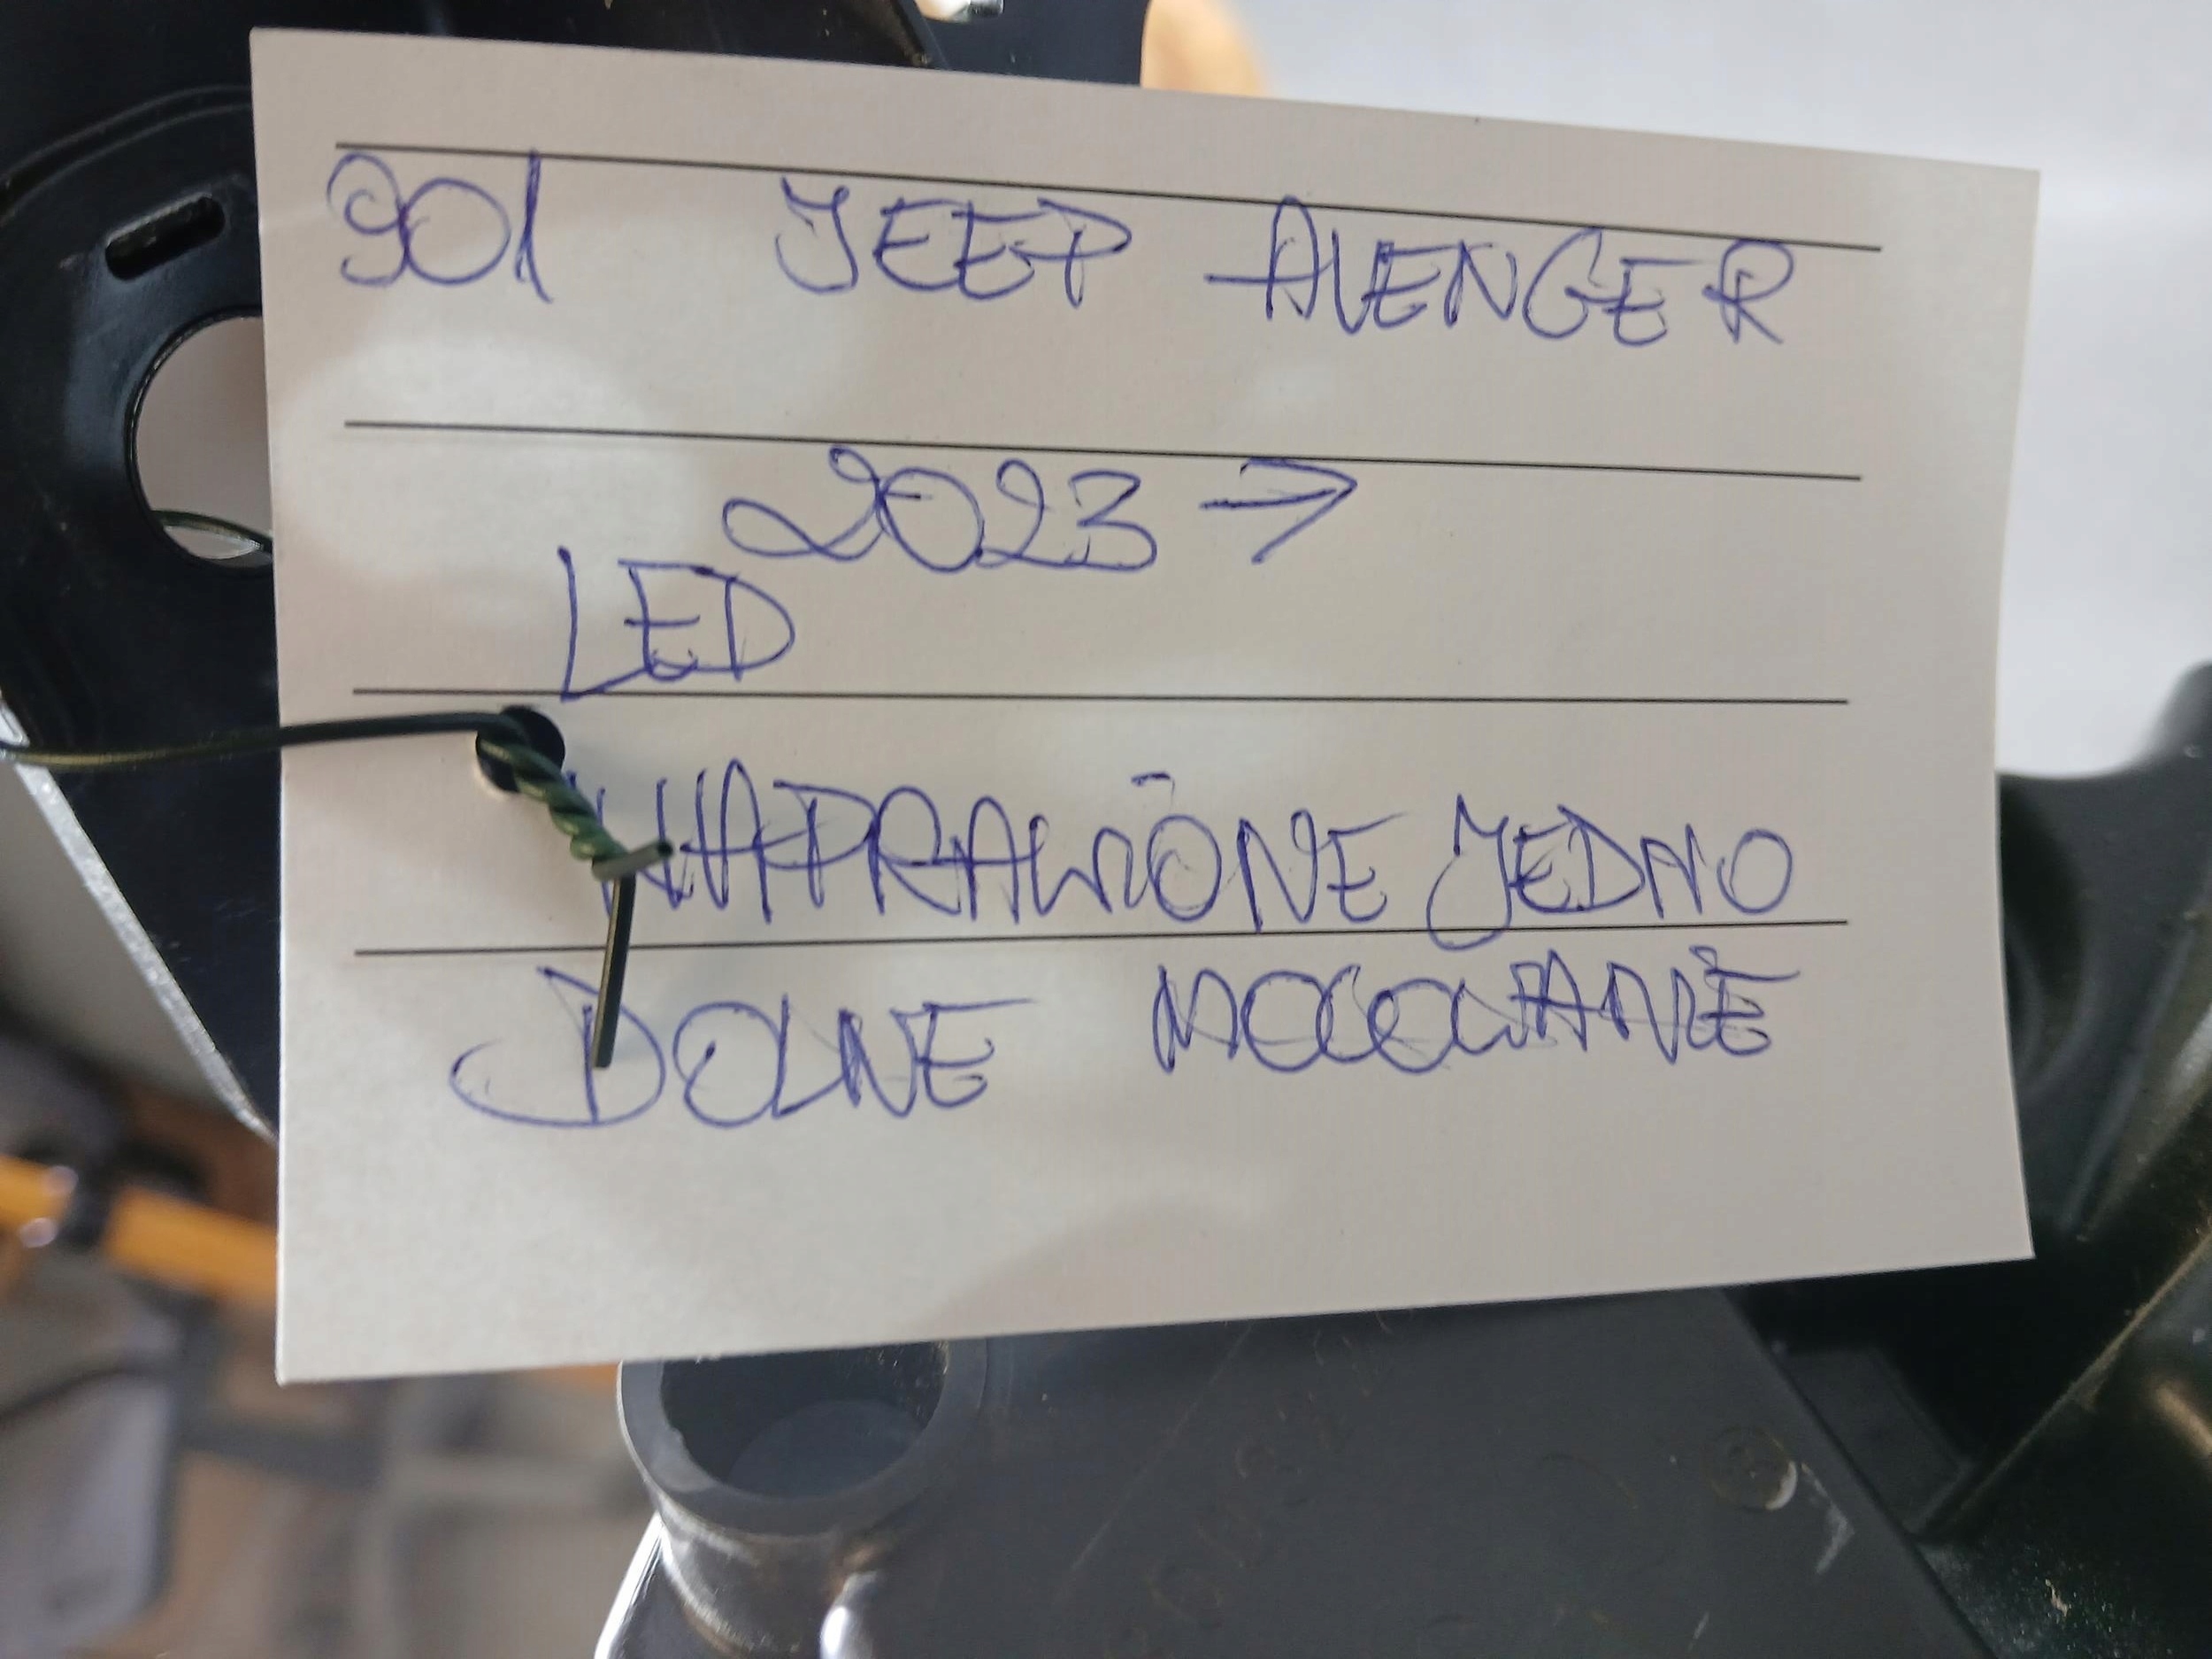 901 JEEP AVENGER
2023 →
LED
NAPRAWIONE JEDNO
DOLNE MOCOWANIE